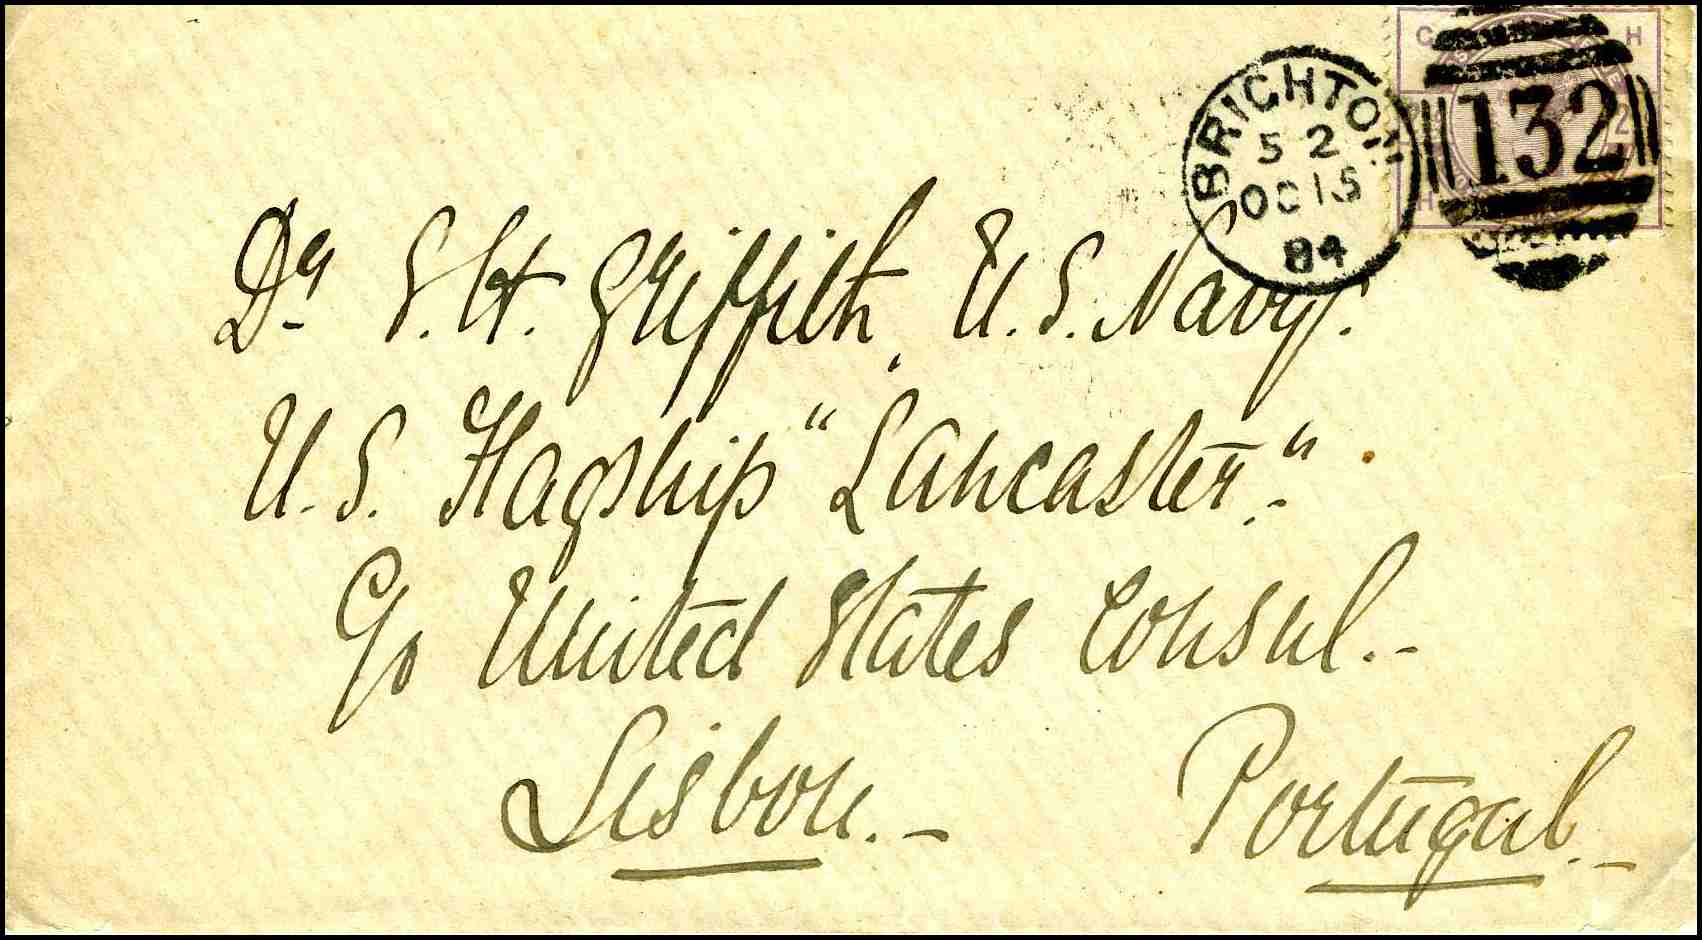 BRIGHTON
5 2
OC 15
84
132
G H
2
H
Dr S. H. Griffith, U. S. Navy.
U. S. Flagship "Lancaster".-
C/o United States Consul.-
Lisbon.- Portugal.-